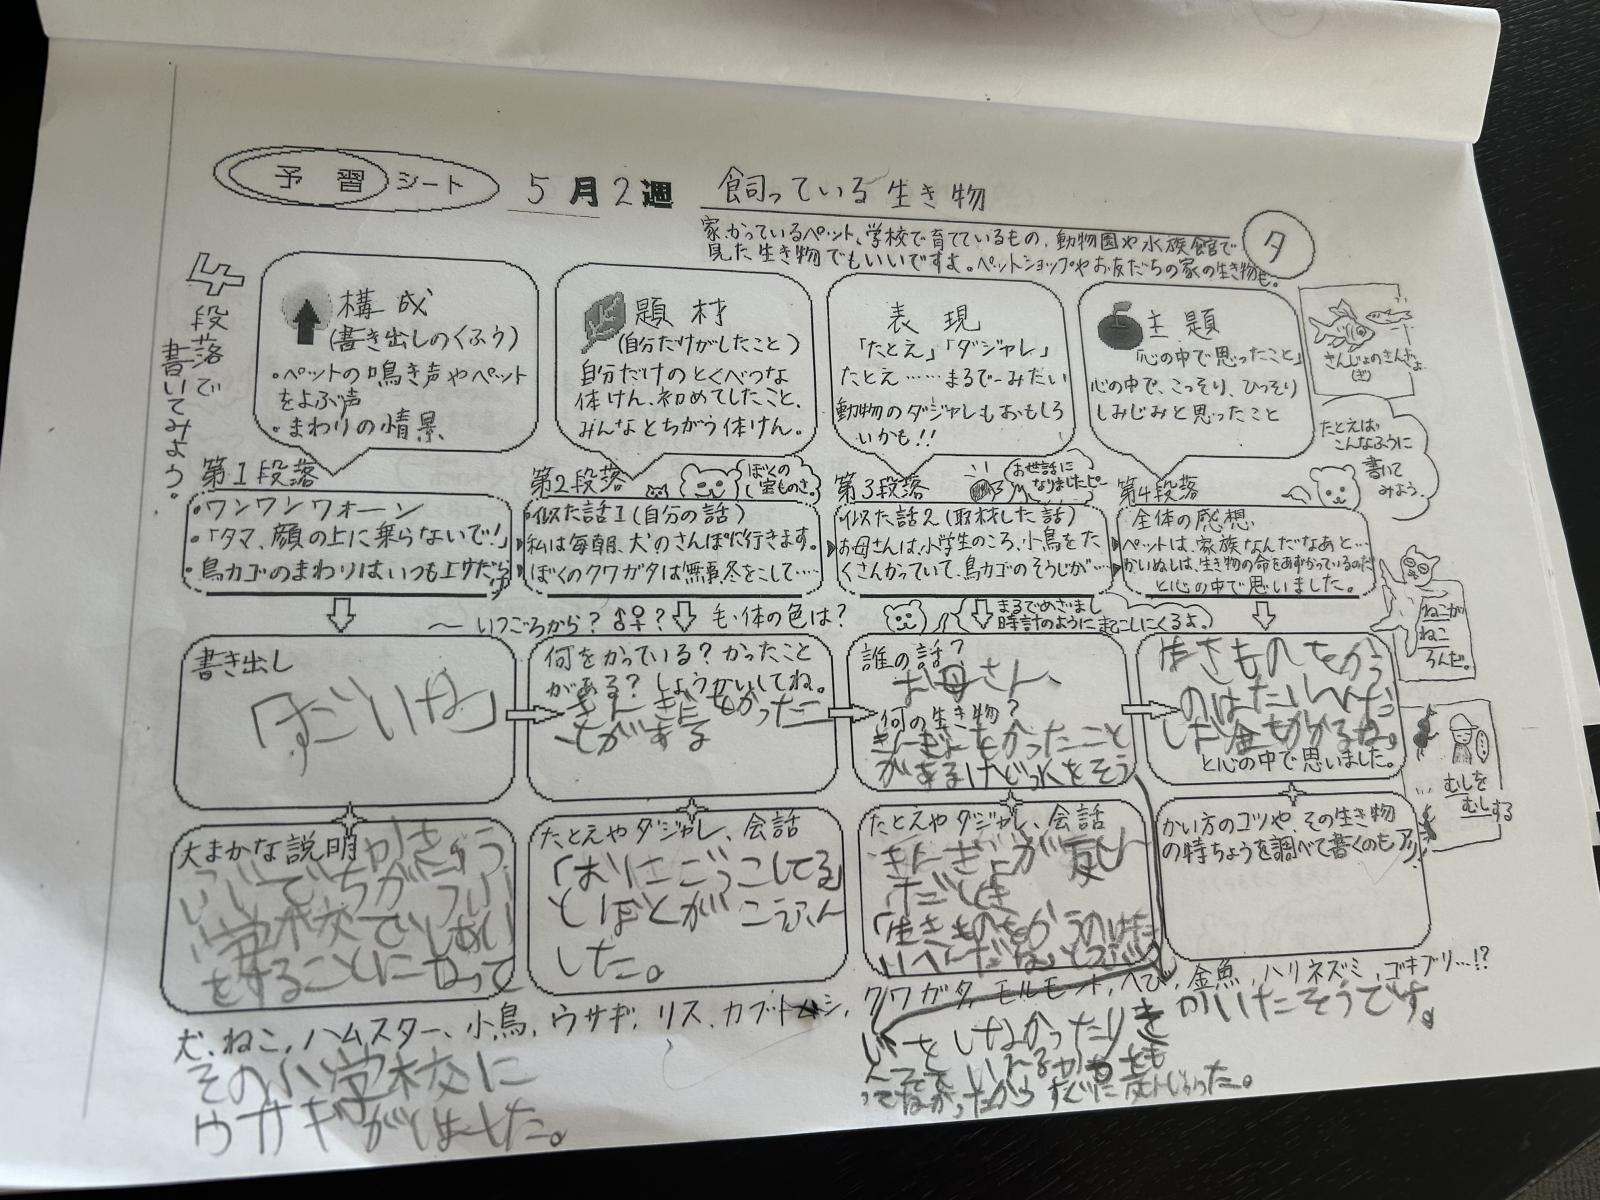 予習シート 5月2週 飼っている生き物
家でかっているペット、学校で育てているもの、動物園や水族館で
見た生き物でもいいですよ。ペットショップやお友だちの家の生き物も。
タ
4段落で
書いてみよう。
構成
(書き出しのくふう)
・ペットの鳴き声やペット
をよぶ声
・まわりの情景
題材
(自分だけがしたこと)
自分だけのとくべつな
体けん、初めてしたこと、
みんなとちがう体けん。
表現
「たとえ」「ダジャレ」
たとえ……まるで〜みたい
動物のダジャレもおもしろ
いかも!!
主題
「心の中で思ったこと」
心の中で、こっそり、ひっそり
しみじみと思ったこと
さんじょのきんぎょ
(ぎ)
たとえば、
こんなふうに
書いて
みよう。
第1段落
・ワンワンウォーン
・「タマ、顔の上に乗らないで!」
・鳥カゴのまわりはいつも
第2段落
ぼくの
宝ものさ。
・似た話1(自分の話)
私は毎朝、犬のさんぽに行きます。
ぼくのクワガタは無事冬をこして……
第3段落
お世話に
なりましたピー
似た話2(取材した話)
お母さんは、小学生のころ、小鳥をた
くさんかっていて、鳥カゴのそうじが……
第4段落
全体の感想
ペットは、家族なんだなあと…
かいぬしは、生き物の命をあずかっているのだ
と心の中で思いました。
〜いつごろから?♂♀? 毛・体の色は?
まるでめざまし
時計のように起こしにくるよ。
ねこが
ねこ
ろんだ。
書き出し
「すごいね」
何をかっている?かったこと
がある?しょうかいしてね。
誰の話?
お母さん、
何の生き物?
きんぎょをかったこと
があるけど水をそう
生きものをかう
のはたいへんだ
と心の中で思いました。
むしを
むしする
大まかな説明
学校で
をすることになって
たとえやダジャレ、会話
「おにごっこしてる」
とぼくが こうふん
した。
たとえやダジャレ、会話
きんぎょが死ん
だとき
「生きものをかうのはた
いへんだな」
かい方のコツや、その生き物
の特ちょうを調べて書くのもアリ!
犬、ねこ、ハムスター、小鳥、ウサギ、リス、カブトムシ、クワガタ、モルモット、へび、金魚、ハリネズミ、ゴキブリ…!?
その小学校に
ウサギがいました。
じをしなかったり
すぐに死んじゃった。
いたそうです。